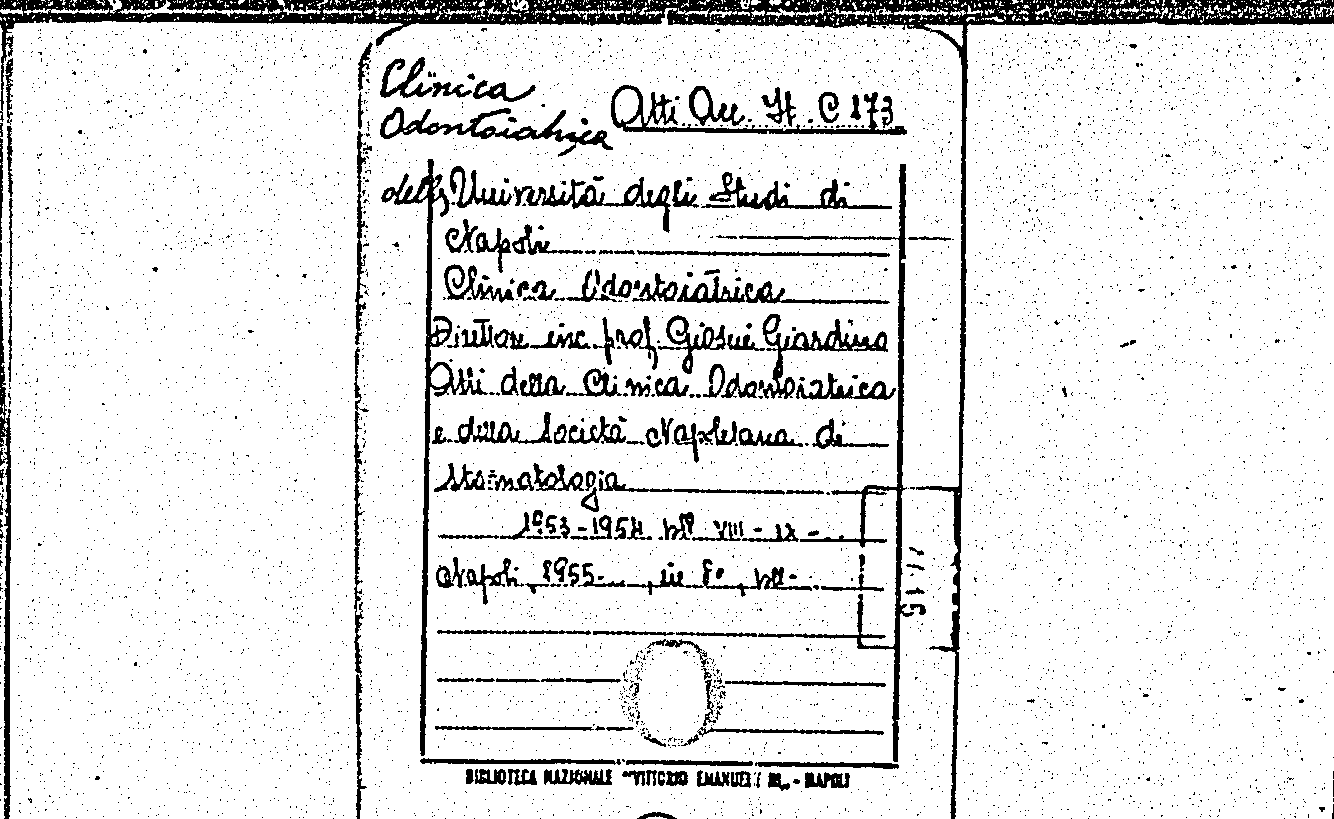 Clinica
Odontoiatrica
Atti Acc. It. C 173
della Università degli Studi di
Napoli
Clinica Odontoiatrica
Direttore inc. prof. Giosuè Giardino
Atti della Clinica Odontoiatrica
e della Società Napoletana di
Stomatologia
1953-1954. voll VIII - IX -
Napoli, 1955-, in 8°, voll-
BIBLIOTECA NAZIONALE "VITTORIO EMANUELE III„ - NAPOLI